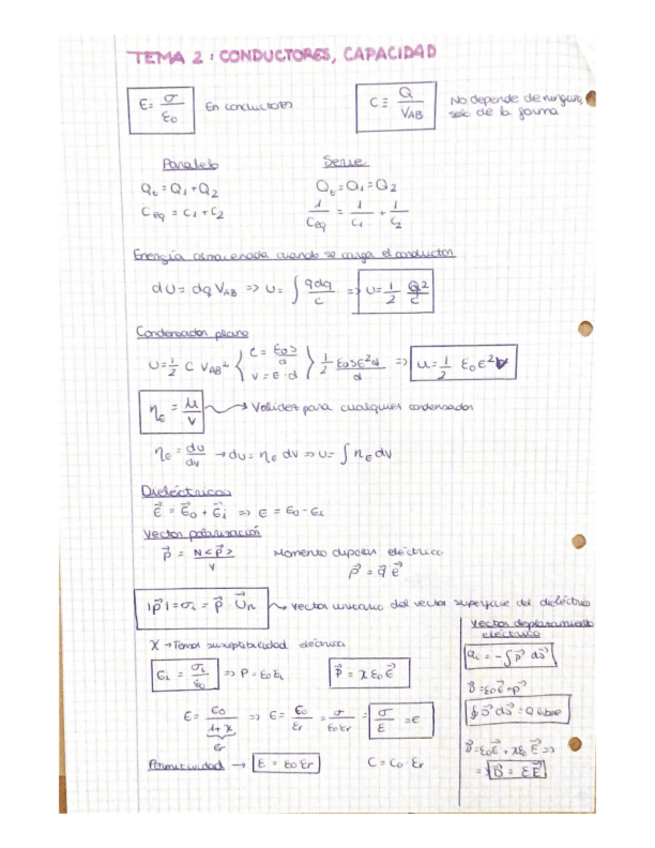 TEMA 2: CONDUCTORES, CAPACIDAD
E = σ/ε0 En conductores
C ≡ Q/VAB No depende de ninguno, solo de la forma
Paralelo Serie
Qt = Q1 + Q2 Qt = Q1 = Q2
Ceq = C1 + C2 1/Ceq = 1/C1 + 1/C2
Energía almacenada cuando se carga el conductor
dU = dq VAB => U = ∫ qdq/C => U = 1/2 Q²/C
Condensador plano
U = 1/2 C VAB² { C = ε0S/d V = E·d } 1/2 ε0SE²d/d => u = 1/2 ε0E²V
ηE = U/V → Válidez para cualquier condensador
ηE = dU/dV → dU = ηE dV => U = ∫ ηE dV
Dieléctricos
E⃗ = E⃗0 + E⃗i => E = E0 - Ei
Vector polarización
P⃗ = N<p⃗>/V Momento dipolar eléctrico
p⃗ = q e⃗
|P⃗| = σi = P⃗ · U⃗n → vector unitario del vector superficie del dieléctrico
χ → susceptibilidad eléctrica
Ei = σi/ε0 => P = ε0Ei P⃗ = χ ε0 E⃗
E = E0/(1+χ) => E = E0/εr = σ/ε0εr = σ/ε = E
εr
Permitividad → ε = ε0 εr C = C0 · εr
Vector desplazamiento
eléctrico
Qi = -∫ P⃗ dS⃗
D⃗ = ε0E⃗ + P⃗
∮ D⃗ dS⃗ = Q libre
D⃗ = ε0E⃗ + χε0 E⃗ =>
= D⃗ = εE⃗